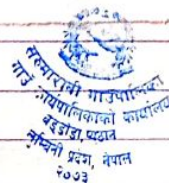 सरुमारानी गाउँपालिका
गाउँ कार्यपालिकाको कार्यालय
बड्डाँडा, प्यूठान
लुम्बिनी प्रदेश, नेपाल
२०७३